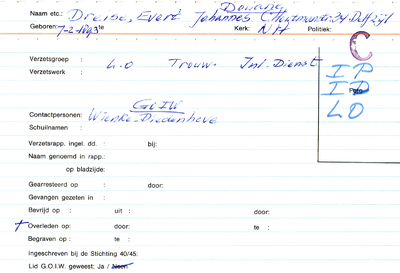 Douane
Naam etc.: Dreise, Everd Johannes Chr. Houtmanstr. 34 Delfzijl
Geboren: 7-2-1893 te Kerk: NH Politiek:
C
Verzetsgroep : L.O Trouw. Inl. Dienst
Verzetswerk :
I P
I D
Foto
L O
G.O.I.W
Contactpersonen: Wienke-Diedenhove
Schuilnamen :
Verzetsrapp. ingel. dd. : bij:
Naam genoemd in rapp.:
op bladzijde:
Gearresteerd op : door:
Gevangen gezeten in :
Bevrijd op : uit : door:
† Overleden op : door: te :
Begraven op : te :
Ingeschreven bij de Stichting 40/45:
Lid G.O.I.W. geweest: Ja / Neen